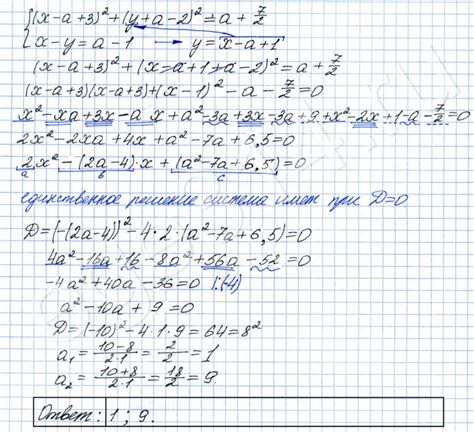 {(x-a+3)²+(y+a-2)²=a+7/2
{x-y=a-1 → y=x-a+1
(x-a+3)²+(x-a+1+a-2)²=a+7/2
(x-a+3)(x-a+3)+(x-1)²-a-7/2=0
x²-xa+3x-ax+a²-3a+3x-3a+9+x²-2x+1-a-7/2=0
2x²-2xa+4x+a²-7a+6,5=0
2x²-(2a-4)·x+(a²-7a+6,5)=0
a b c
единственное решение система имет при D=0
D=(-(2a-4))²-4·2·(a²-7a+6,5)=0
4a²-16a+16-8a²+56a-52=0
-4a²+40a-36=0 |:(-4)
a²-10a+9=0
D=(-10)²-4·1·9=64=8²
a₁=(10-8)/(2·1)=2/2=1
a₂=(10+8)/(2·1)=18/2=9
Ответ: 1; 9.